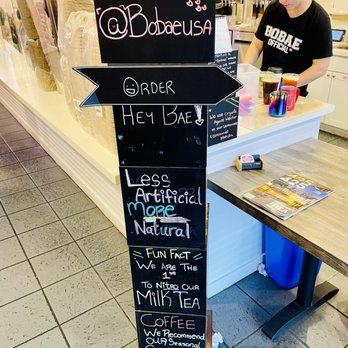 @BobaeUSA
Order
Hey Bae!
Less
Artificial
More
Natural
Fun Fact
We Are The
1st
To Nitro Our
Milk Tea
Coffee
We Recommend
Our Seasonal
BOBAE
OFFICIAL